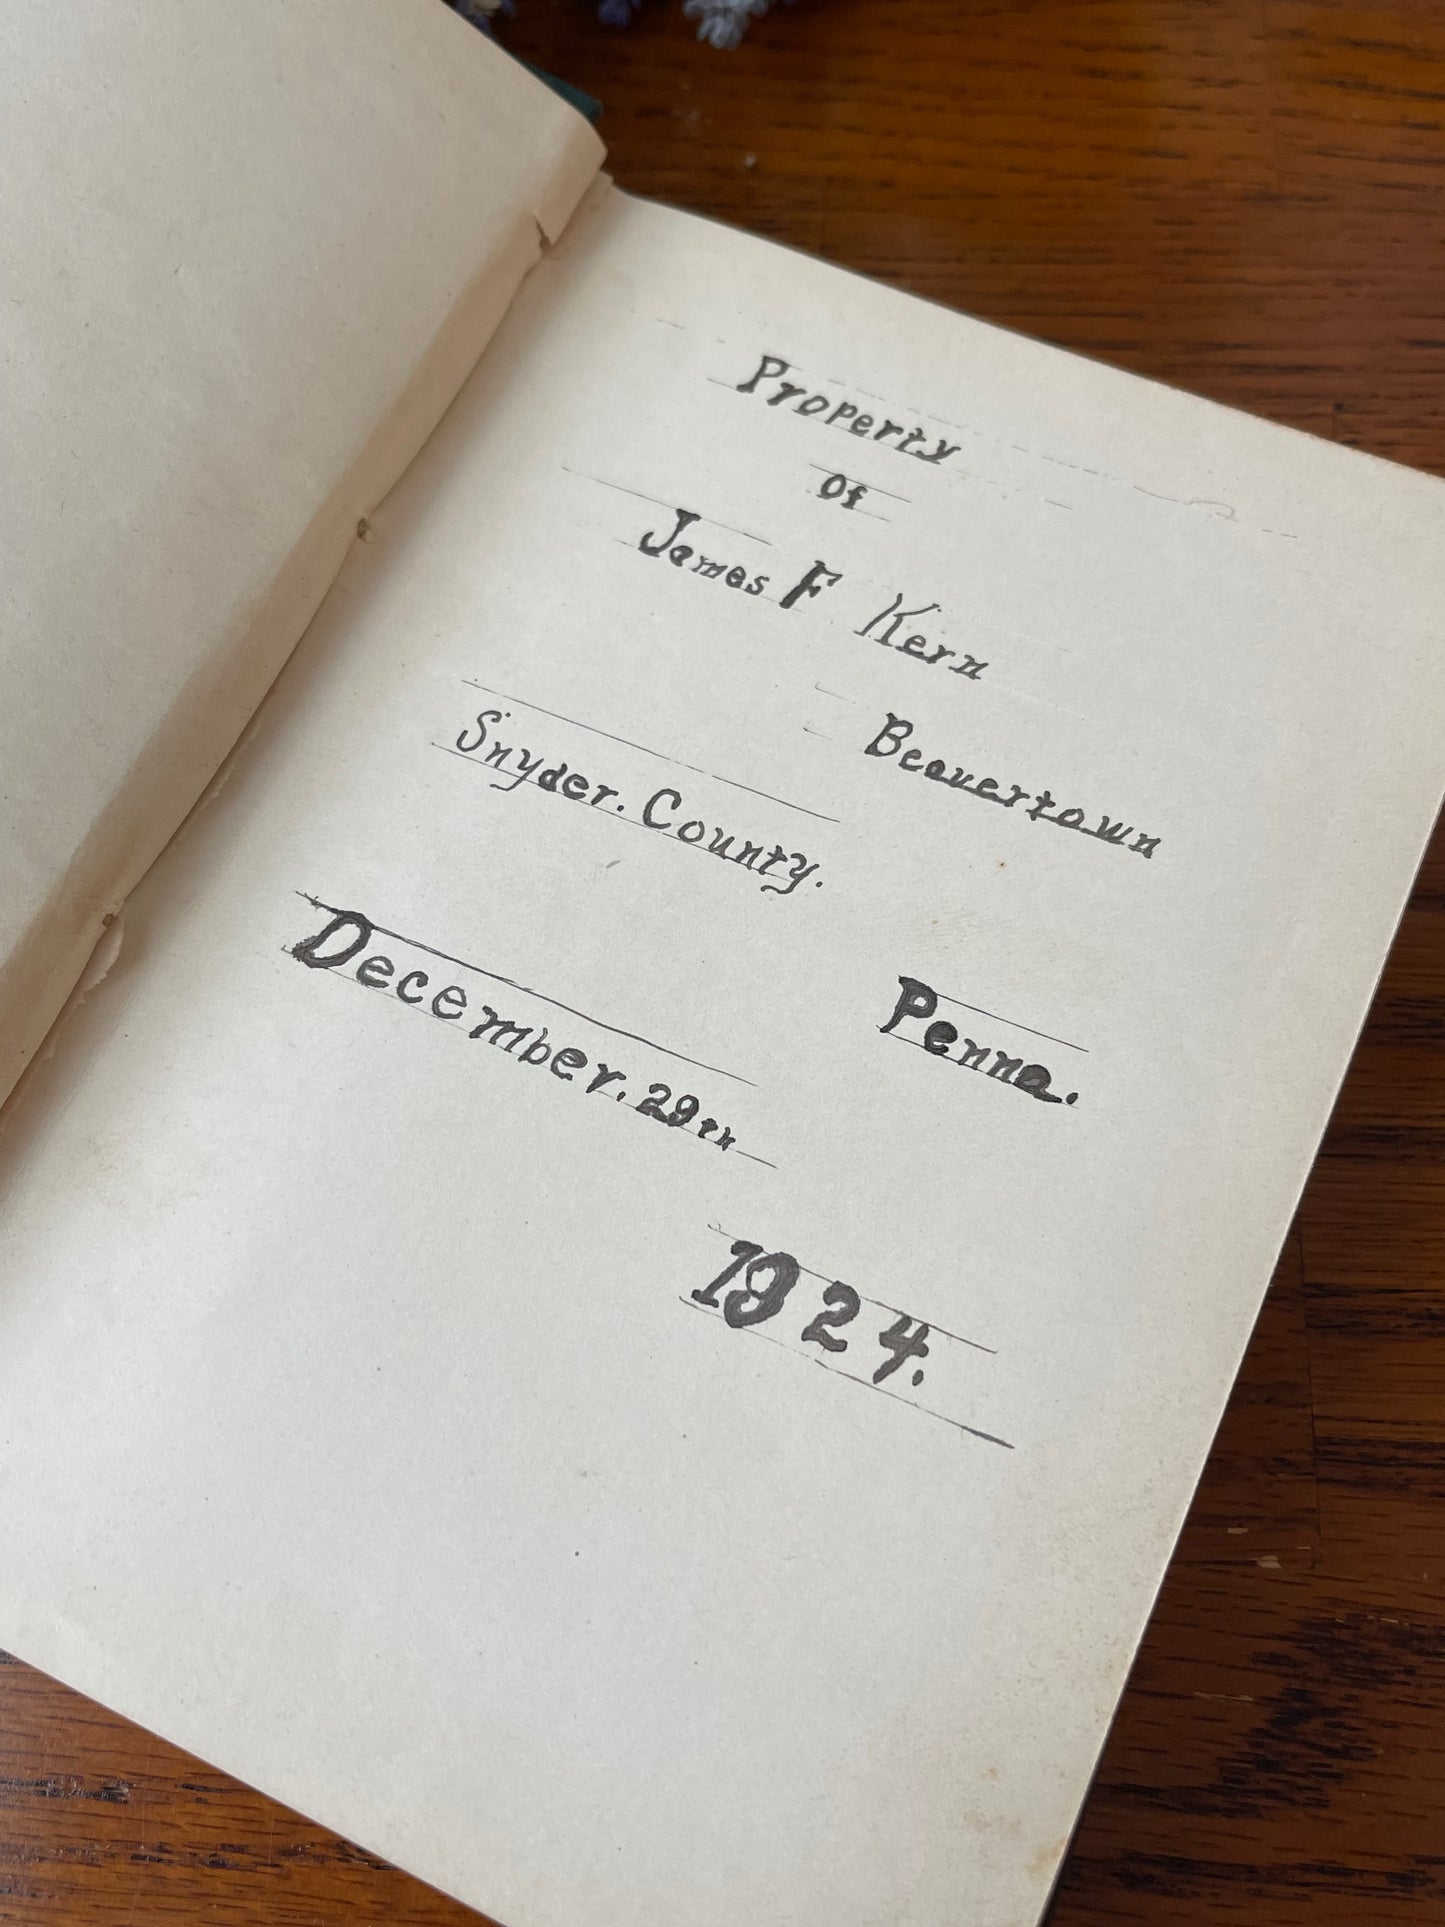 Property
Of
James F Kern
Beavertown
Snyder. County.
Penna.
December. 29th
1924.